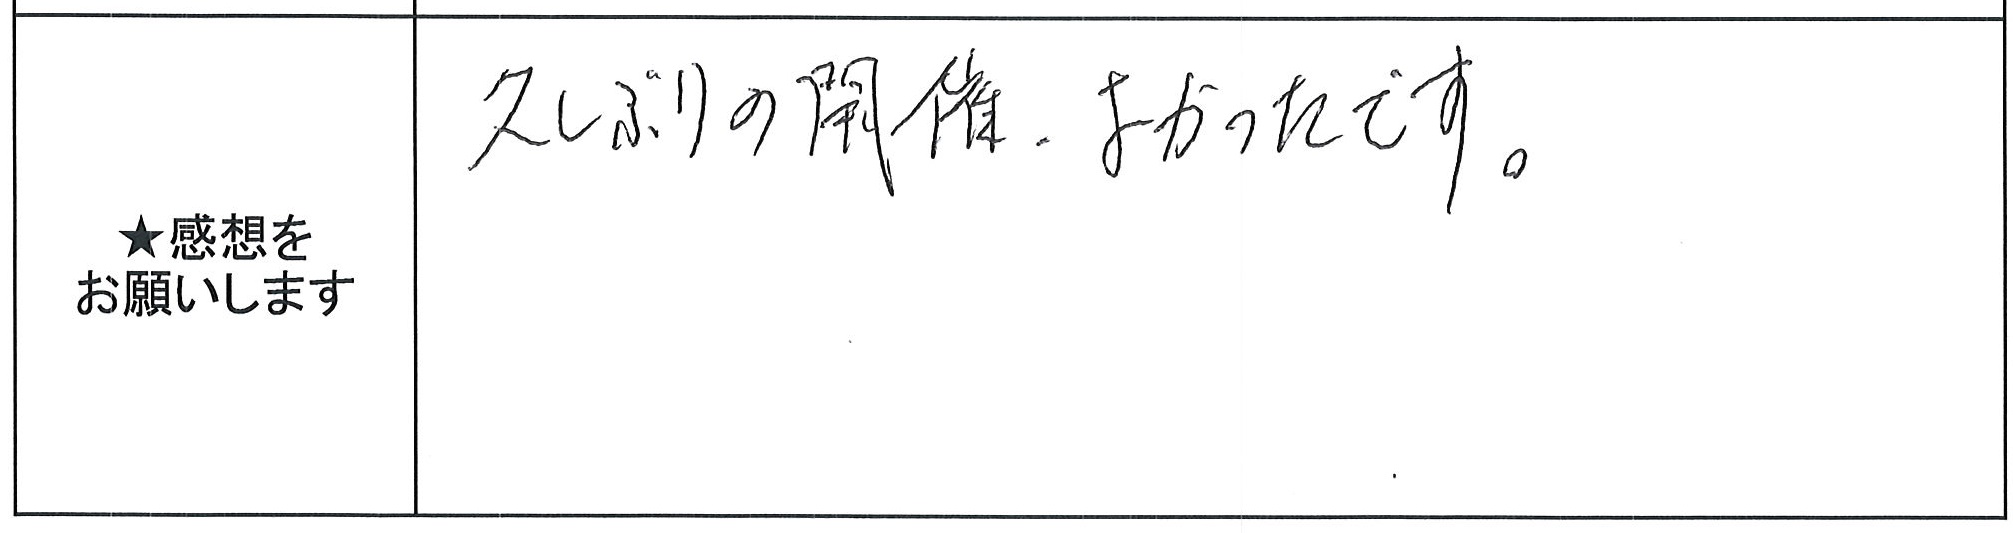 久しぶりの開催、よかったです。
★感想を
お願いします